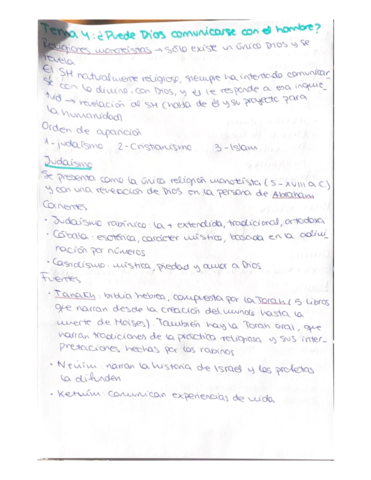 Tema 4: ¿Puede Dios comunicarse con el hombre?
Religiones monoteístas → sólo existe un único Dios y se
revela
El SH naturalmente religioso, siempre ha intentado comunicar
se con lo divino, con Dios, y él le responde a esa inquie
tud → revelación al SH (habla de él y su proyecto para
la humanidad)
Orden de aparición
1-judaísmo 2-Cristianismo 3-Islam
Judaísmo
Se presenta como la única religión monoteísta (S-XVIII a.C)
y con una revelación de Dios en la persona de Abraham
Corrientes
· Judaísmo rabínico: la + extendida, tradicional, ortodoxa
· Cábala: esotérica, carácter místico, basada en la adivi
nación por números
· Casidismo: mística, piedad y amor a Dios
Fuentes
· Tanakh: biblia hebrea, compuesta por la Torah (5 libros
que narran desde la creación del mundo hasta la
muerte de Moises). También hay la Torah oral, que
narran tradiciones de la práctica religiosa y sus inter-
pretaciones hechas por los rabinos
· Neviim: narran la historia de Israel y los profetas
la difunden
· Ketuvim: comunican experiencias de vida